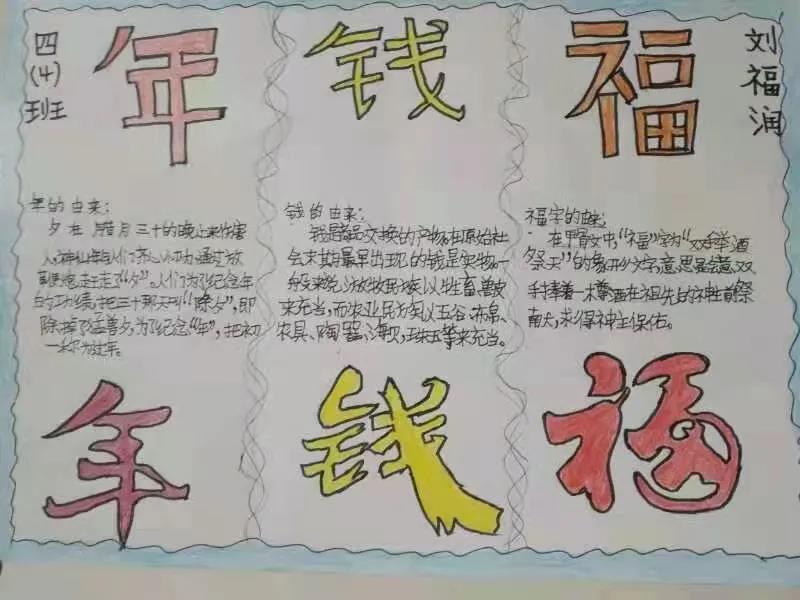 四
(4)
班
年
钱
福
刘
福
润
年的由来：
夕在腊月三十的晚上来伤害
人，神仙年与人们齐心协力，通过放
鞭炮赶走了“夕”。人们为了纪念年
的功绩，把三十那天叫“除夕”，即
除掉了夕，为了纪念“年”，把初
一称为过年。
钱的由来：
钱是商品交换的产物。在原始社
会末期最早出现的钱是实物。一
般来说，游牧民族以牲畜、兽皮
来充当，而农业民族以五谷、布帛、
农具、陶器、海贝，珠玉等来充当。
福字的由来：
在甲骨文中“福”字为“双手举酒
祭天”的象形文字，意思是会意双
手捧着一樽酒在祖先的神主前祭
，求得神主保佑。
年
钱
福